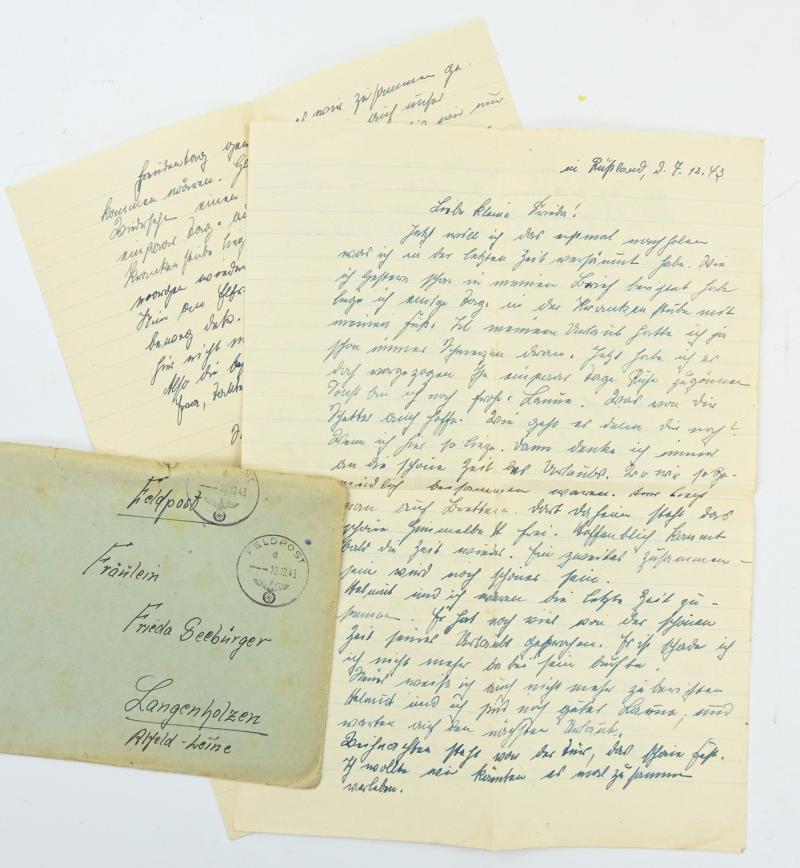 in Rußland, d. 7.12.43
Liebe kleine Frieda!
Jetzt will ich das erstmal nachholen
was ich in der letzten Zeit versäumt habe. Wie
ich Gestern schon in meinen Brief berichtet habe
liege ich einige Tage in der Krankenstube mit
meinen Fuß. In meinem Urlaub hatte ich ja
schon immer Schmerzen daran. Jetzt habe ich es
doch vorgezogen Ihn ein paar Tage Ruhe zugönnen
Sonst bin ich noch froher Laune. Was von Dir
auch hoffe. Wie geht es denn Dir noch?
Wenn ich hier so liege. Dann denke ich immer
an die schöne Zeit des Urlaubs. Wo wir so Ge-
mütlich beisammen waren. Hier liegt
man auf Brettern. Dort daheim steht das
schöne Himmelbett frei. Hoffentlich kommt
bald die Zeit wieder. Ein zweites Zusammen-
sein wird noch schöner sein.
Helmut und ich waren die letzte Zeit zu-
sammen. Er hat noch viel von der schönen
Zeit seines Urlaubs gesprochen. Es ist schade ich
ich nicht mehr da bei sein durfte.
Neues weiß ich auch nicht mehr zu berichten
Helmut und ich sind noch guter Laune, und
warten auf den nächsten Urlaub.
Weihnachten steht vor der Tür, das schöne Fest.
Ich wollte wir könnten es mal zusammen
verleben.
wir zusammen ge-
Freudentag
auch unser
kommen wären.
wir nur
Wiedersehn einen
ein paar Tage
Krankenstube lieg
worden
hier nicht m
Also die be
Feldpost
FELDPOST
d
10.12.43
FELDPOST
d
10.12.43
Fräulein
Frieda Seebürger
Langenholzen
Alfeld-Leine